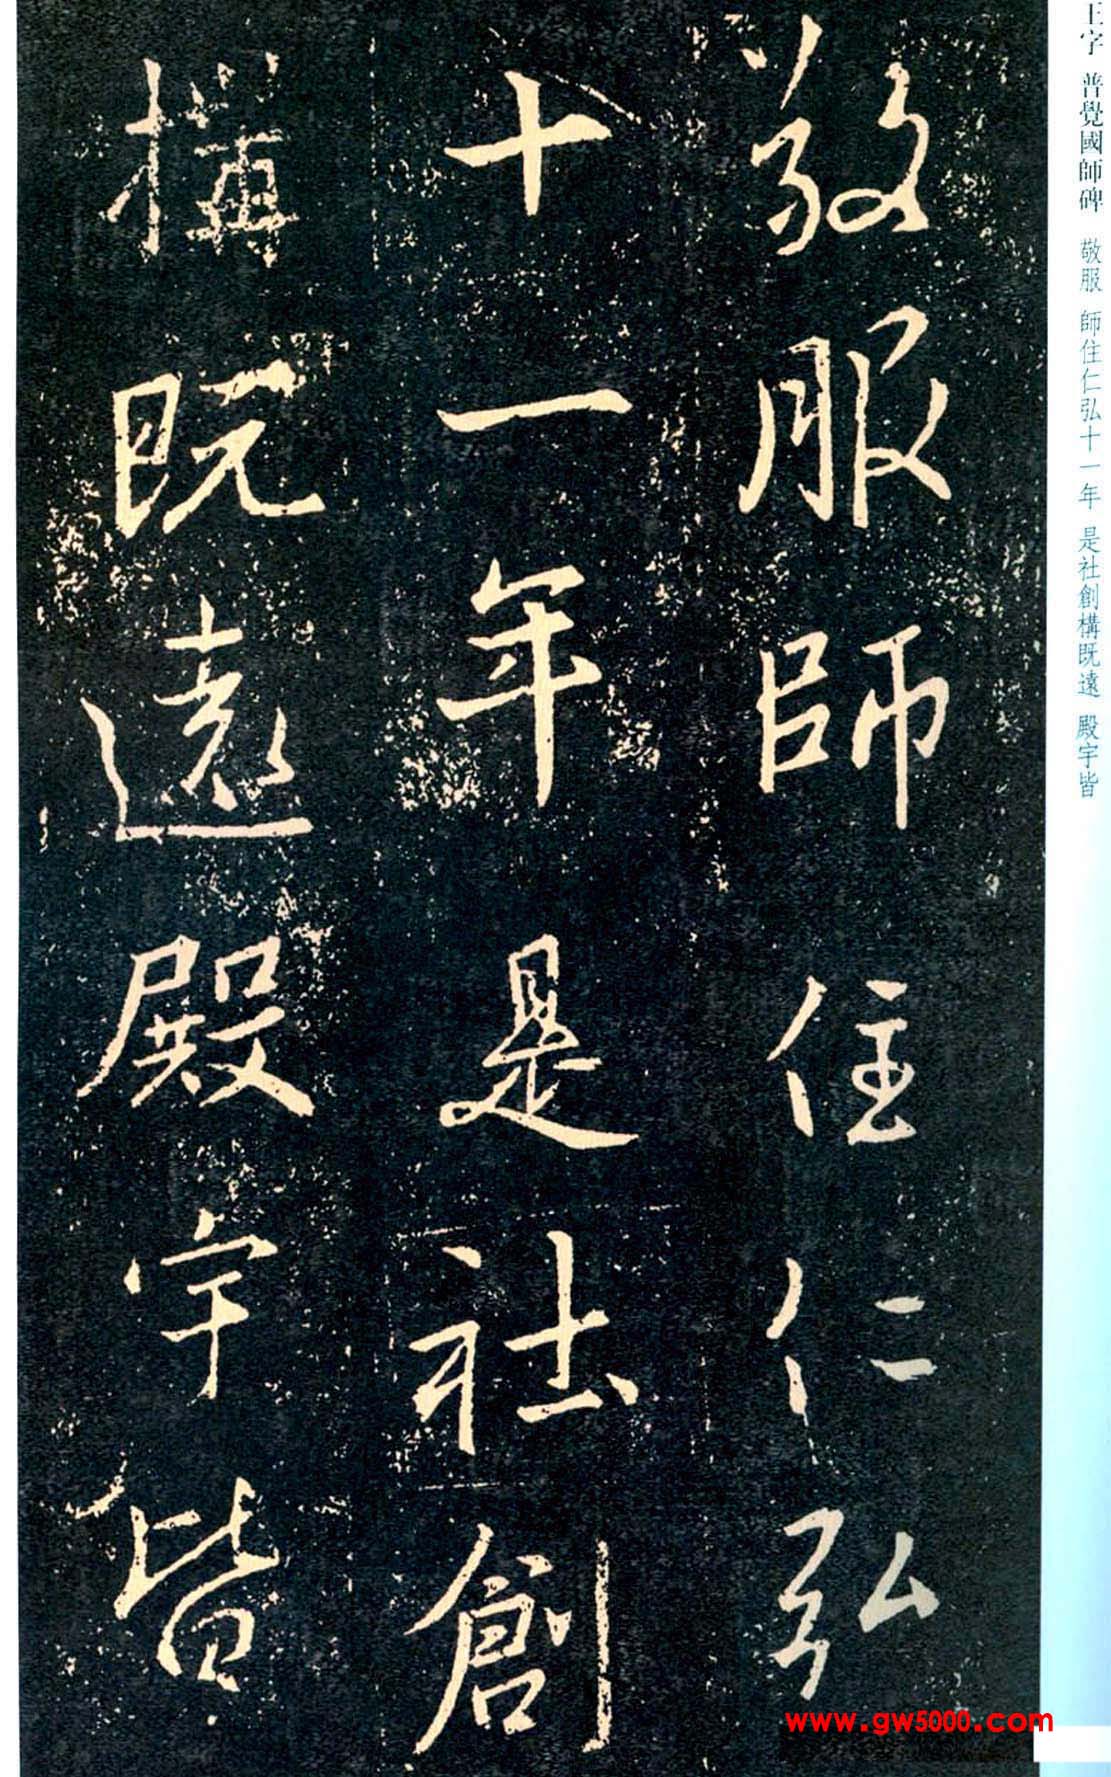 王字 普覺國師碑 敬服 師住仁弘十一年 是社創構既遠 殿宇皆
敬服師住仁弘
十一年是社創
構既遠殿宇皆
www.gw5000.com